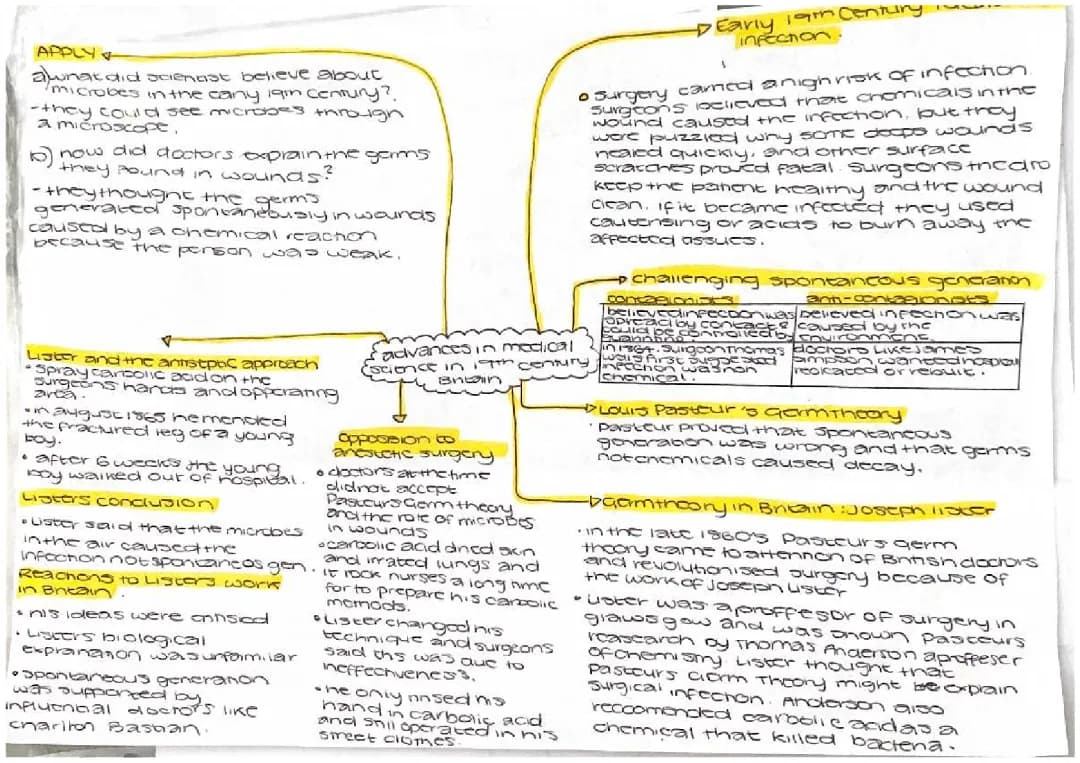 APPLY
a) what did scientist believe about
microbes in the early 19th century?
-they could see microbes through
a microscope.
b) how did doctors explain the germs
they found in wounds?
-they thought the germs
generated spontaneously in wounds
caused by a chemical reaction
because the person was weak.
Early 19th Century
infection.
surgery carried a high risk of infection.
surgeons believed that chemicals in the
wound caused the infection, but they
were puzzled why some deeps wounds
healed quickly, and other surface
scratches proved fatal. Surgeons tried to
keep the patient healthy and the wound
clean. If it became infected they used
cauterising or acids to burn away the
affected tissues.
challenging spontaneous generation
contagionists
anti-contagionists
believed infection was
spread by contact &
could be controlled by
believed infection was
caused by the
environment.
in 1864, surgeon Thomas
was first suggested
infection was non
chemical.
doctors like James
simpson wanted hospital
relocated or rebuilt.
advances in medical
science in 19th century
Britain
Louis Pasteur's Germ theory
• Pasteur proved that spontaneous
generation was wrong and that germs
not chemicals caused decay.
Germ theory in Britain: Joseph lister
• in the late 1860's Pasteur's Germ
theory came to attention of British doctors
and revolutionised surgery because of
the work of Joseph Lister
• Lister was a proffesor of surgery in
glawsgow and was shown Pasteurs
reasearch by Thomas Anderson a proffeser
of chemistry. Lister thought that
Pasteurs Germ Theory might be explain
surgical infection. Anderson also
recoomended carbolic acid as a
chemical that killed bacteria.
Lister and the antiseptic approach
• Spray carbolic acid on the
surgeons' hands and opperating
area.
• in august 1865 he mended
the fractured leg of a young
boy.
• after 6 weeks the young
boy walked out of hospital.
Listers conclusion
• Lister said that the microbes
in the air caused the
infection not spontaneos gen.
Reactions to Listers work
in Britain.
• his ideas were critisied
• Listers biological
explanation was unfamiliar
• spontaneous generation
was supported by
influential doctors like
charlton Bastian.
opposision to
anestetic surgery
• doctors at the time
did not accept
Pasteurs Germ theory
and the role of microbes
in wounds
• carbolic acid dried skin
and irrated lungs and
it took nurses a long time
for to prepare his carbolic
methods.
• Lister changed his
technique and surgeons
said this was due to
ineffectiveness.
• he only rinsed his
hand in carbolic acid
and still operated in his
street clothes.